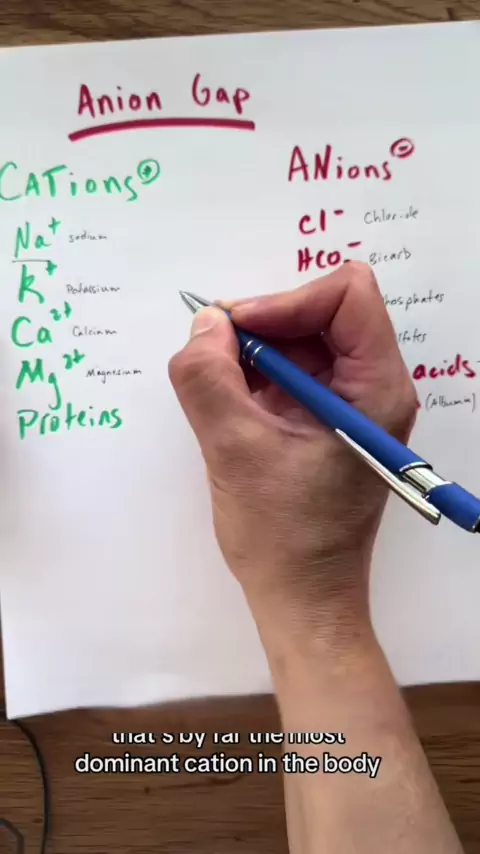 Anion Gap
CATions +
Na+ sodium
K+ Potassium
Ca2+ Calcium
Mg2+ Magnesium
Proteins
ANions -
Cl- Chloride
HCO - Bicarb
hosphates
lfates
acids
(Albumin)
that's by far the most
dominant cation in the body